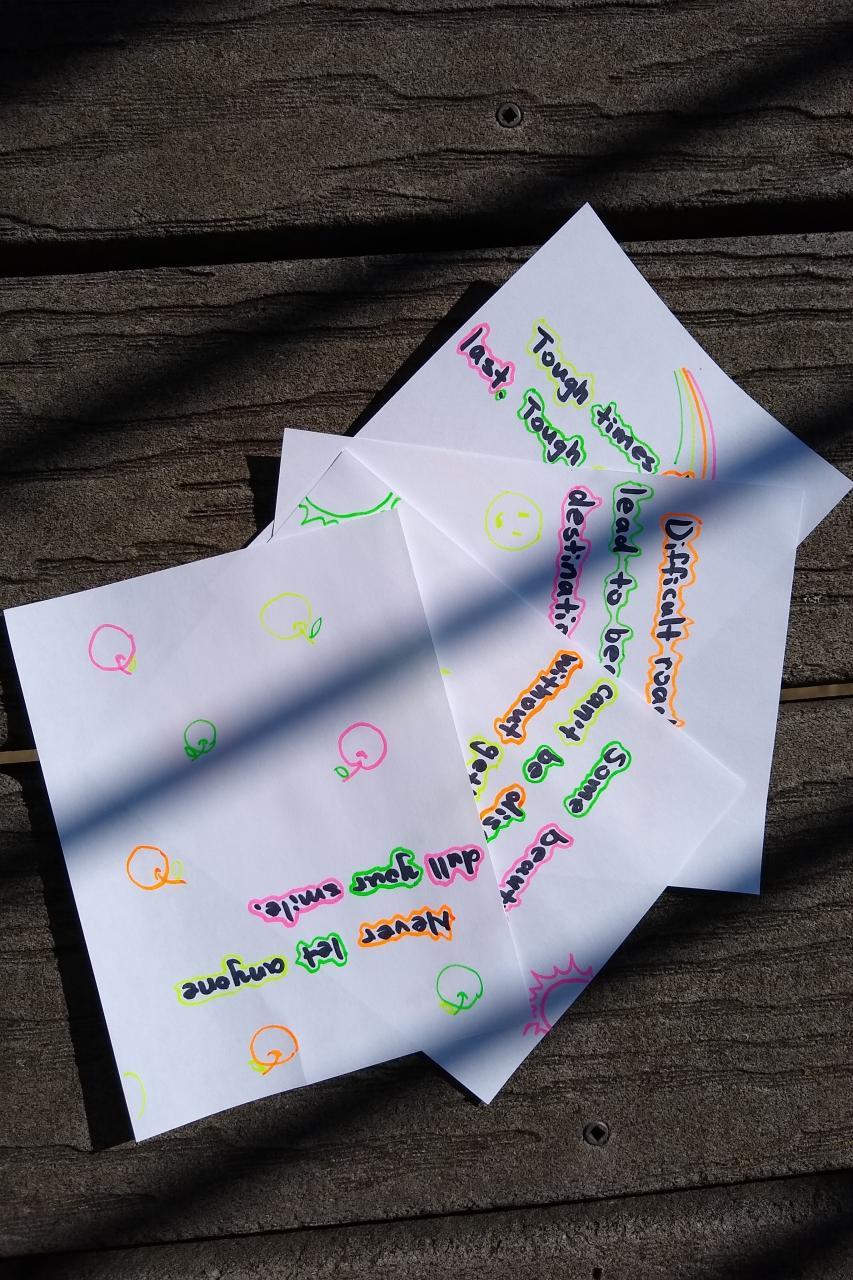 Tough times
last. Tough
Difficult roa
lead to be
destinati
Some beauti
can't be dis
without ge
Never let anyone
dull your smile.